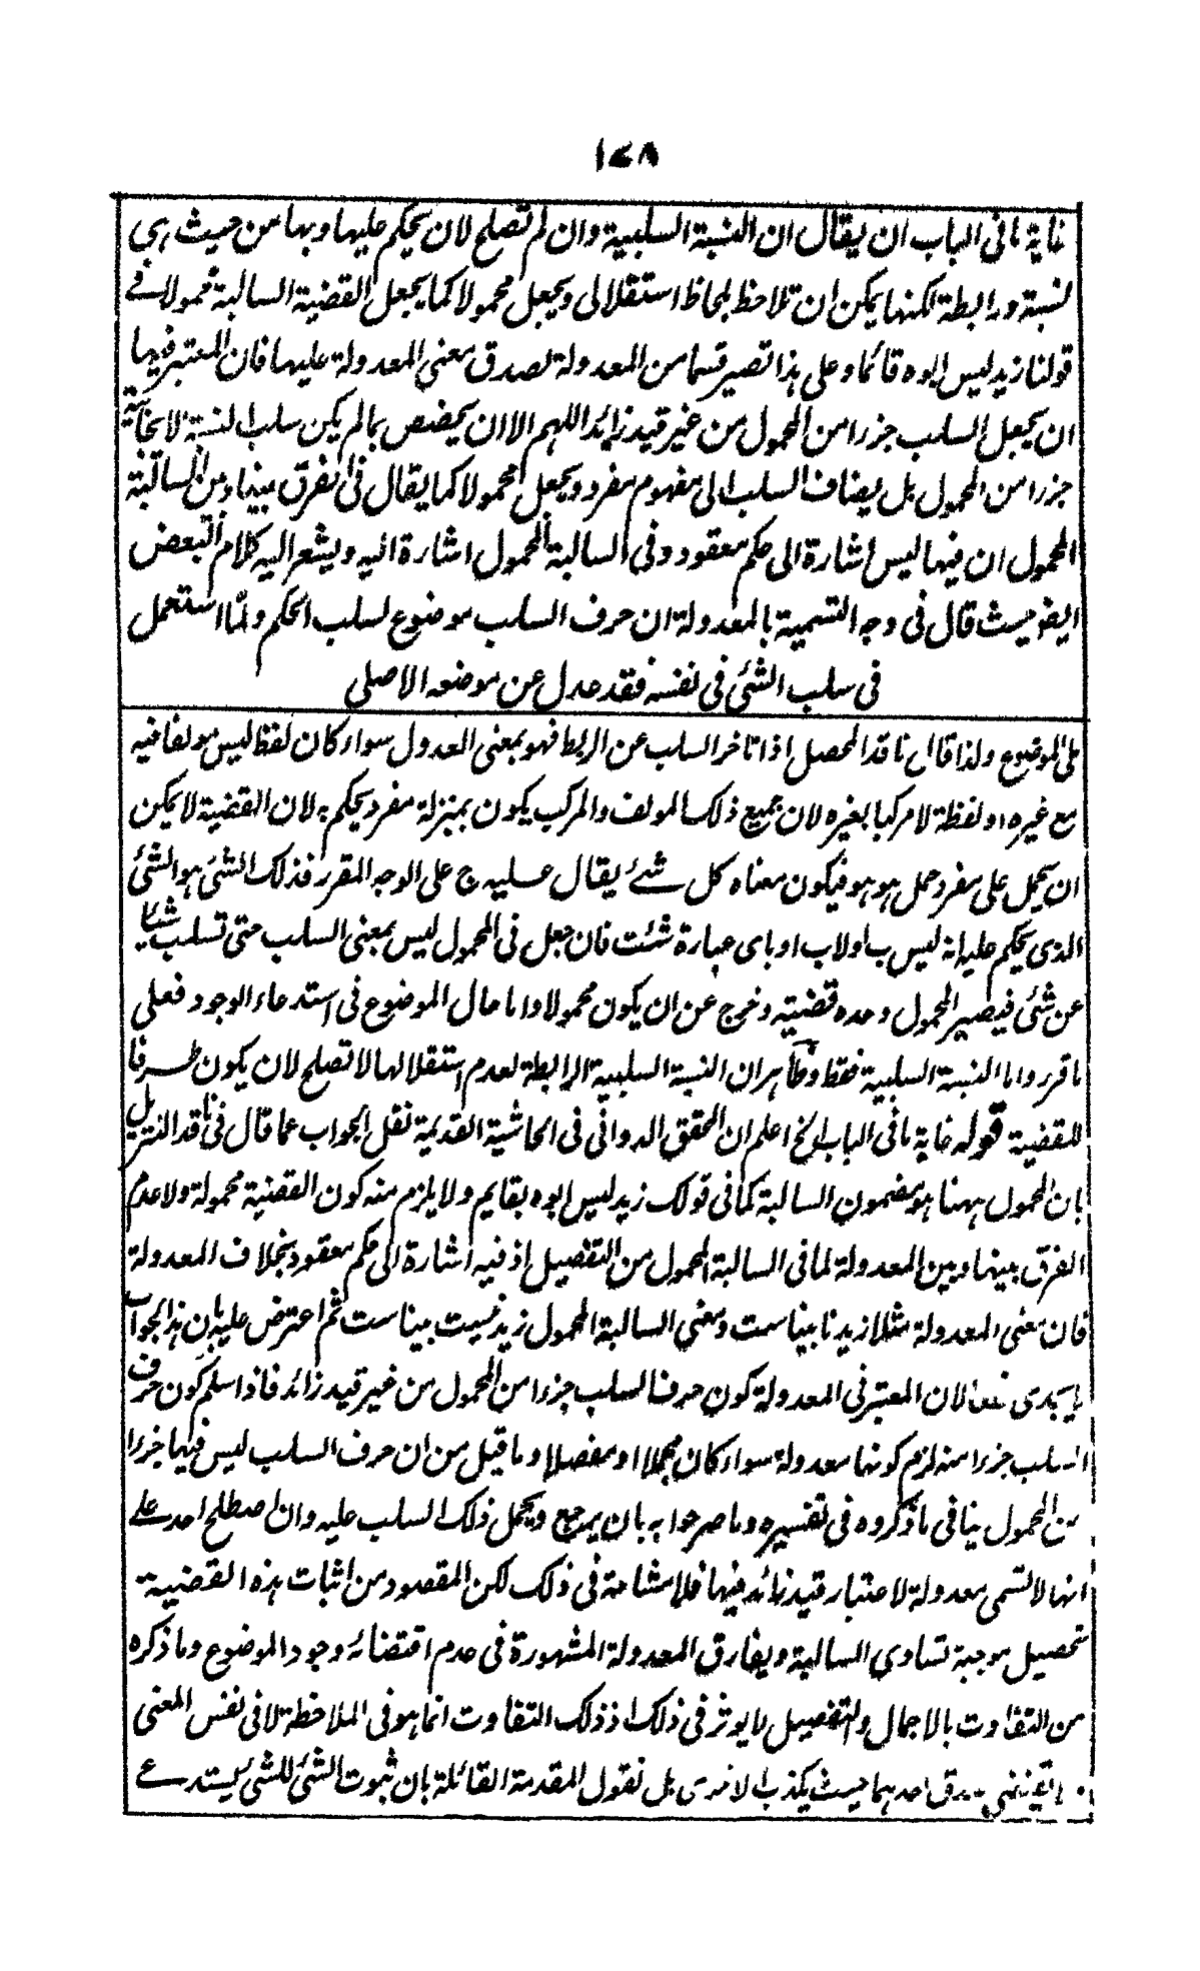 ١٧٨
غاية ما فى الباب ان يقال ان النسبة السلبية وان لم تصلح لان يحكم عليها وبها من حيث هى
نسبة ورابطة لكنها يمكن ان تلاحظ بلحاظ استقلالى ويجعل محمولا كما يجعل القضية السالبة محمولا فى
قولنا زيد ليس ابوه قائما وعلى هذا تصير قسما من المعدولة لصدق معنى المعدولة عليها فان المعتبر فيها
ان يجعل السلب جزءا من المحمول من غير قيد زائد اللهم الا ان يخصص بما لم يكن سلب النسبة الايجابية
جزءا من المحمول بل يضاف السلب الى مفهوم مفرد ويجعل محمولا كما يقال فى الفرق بينها وبين السالبة
المحمول ان فيها ليس اشارة الى حكم معقود وفى السالبة المحمول اشارة اليه ويشعر اليه كلام البعض
ايضا حيث قال فى وجه التسمية بالمعدولة ان حرف السلب موضوع لسلب الحكم ولما استعمل
فى سلب الشئ فى نفسه فقد عدل عن موضعه الاصلى
على الموضوع ولذا قال ناقد المحصل اذا تاخر السلب عن الربط فهو بمعنى العدول سواء كان لفظ ليس مولفا فيه
مع غيره او لفظة لا مركبا بغيره لان جميع ذلك المولف والمركب يكون بمنزلة مفرد يحكم به لان القضية لا يمكن
ان يحمل على مفرد حمل هو هو فيكون معناه كل شئ يقال عليه ج على الوجه المقرر فذلك الشئ هو الشئ
الذى يحكم عليه انه ليس ب او لا ب او باى عبارة شئت فان جعل فى المحمول ليس بمعنى السلب حتى تسلب شيئا
عن شئ فيصير المحمول وحده قضية وخرج عن ان يكون محمولا واما حال الموضوع فى استدعاء الوجود فعلى
ما قرر واما النسبة السلبية فقط وظاهر ان النسبة السلبية الرابطة لعدم استقلالها لا تصلح لان يكون طرفا
للقضية قوله غاية ما فى الباب الخ اعلم ان المحقق الدوانى فى الحاشية القديمة نقل الجواب عما قال فى ناقد التنزيل
بان المحمول ههنا هو مضمون السالبة كما فى قولك زيد ليس ابوه بقايم ولا يلزم منه كون القضية محمولة ولا عدم
الفرق بينها وبين المعدولة لما فى السالبة المحمول من التفصيل اذ فيه اشارة الى حكم معقود بخلاف المعدولة
فان معنى المعدولة مثلا زيد نابيناست ومعنى السالبة المحمول زيد نيست بيناست ثم اعترض عليه بان هذا الجواب
لا يجدى نفعا لان المعتبر فى المعدولة كون حرف السلب جزءا من المحمول من غير قيد زائد فاذا سلم كون حرف
السلب جزءا منه لزم كونها معدولة سواء كان مجملا او مفصلا وما قيل من ان حرف السلب ليس فيها جزءا
من المحمول ينافى ما ذكروه فى تفسيره وما صرحوا به بان يرجع ويحمل ذلك السلب عليه وان اصطلح احد على
انها لا تسمى معدولة لاعتبار قيد زائد فيها فلا مشاحة فى ذلك لكن المقصود من اثبات هذه القضية
تحصيل موجبة تساوى السالبة ويفارق المعدولة المشهورة فى عدم اقتضائه وجود الموضوع وما ذكره
من التفاوت بالاجمال والتفصيل لا يوثر فى ذلك اذ ذلك التفاوت انما هو فى الملاحظة لا فى نفس المعنى
احدهما حيث يكذب الاخرى بل نقول المقدمة القائلة بان ثبوت الشئ للشئ يستدعى